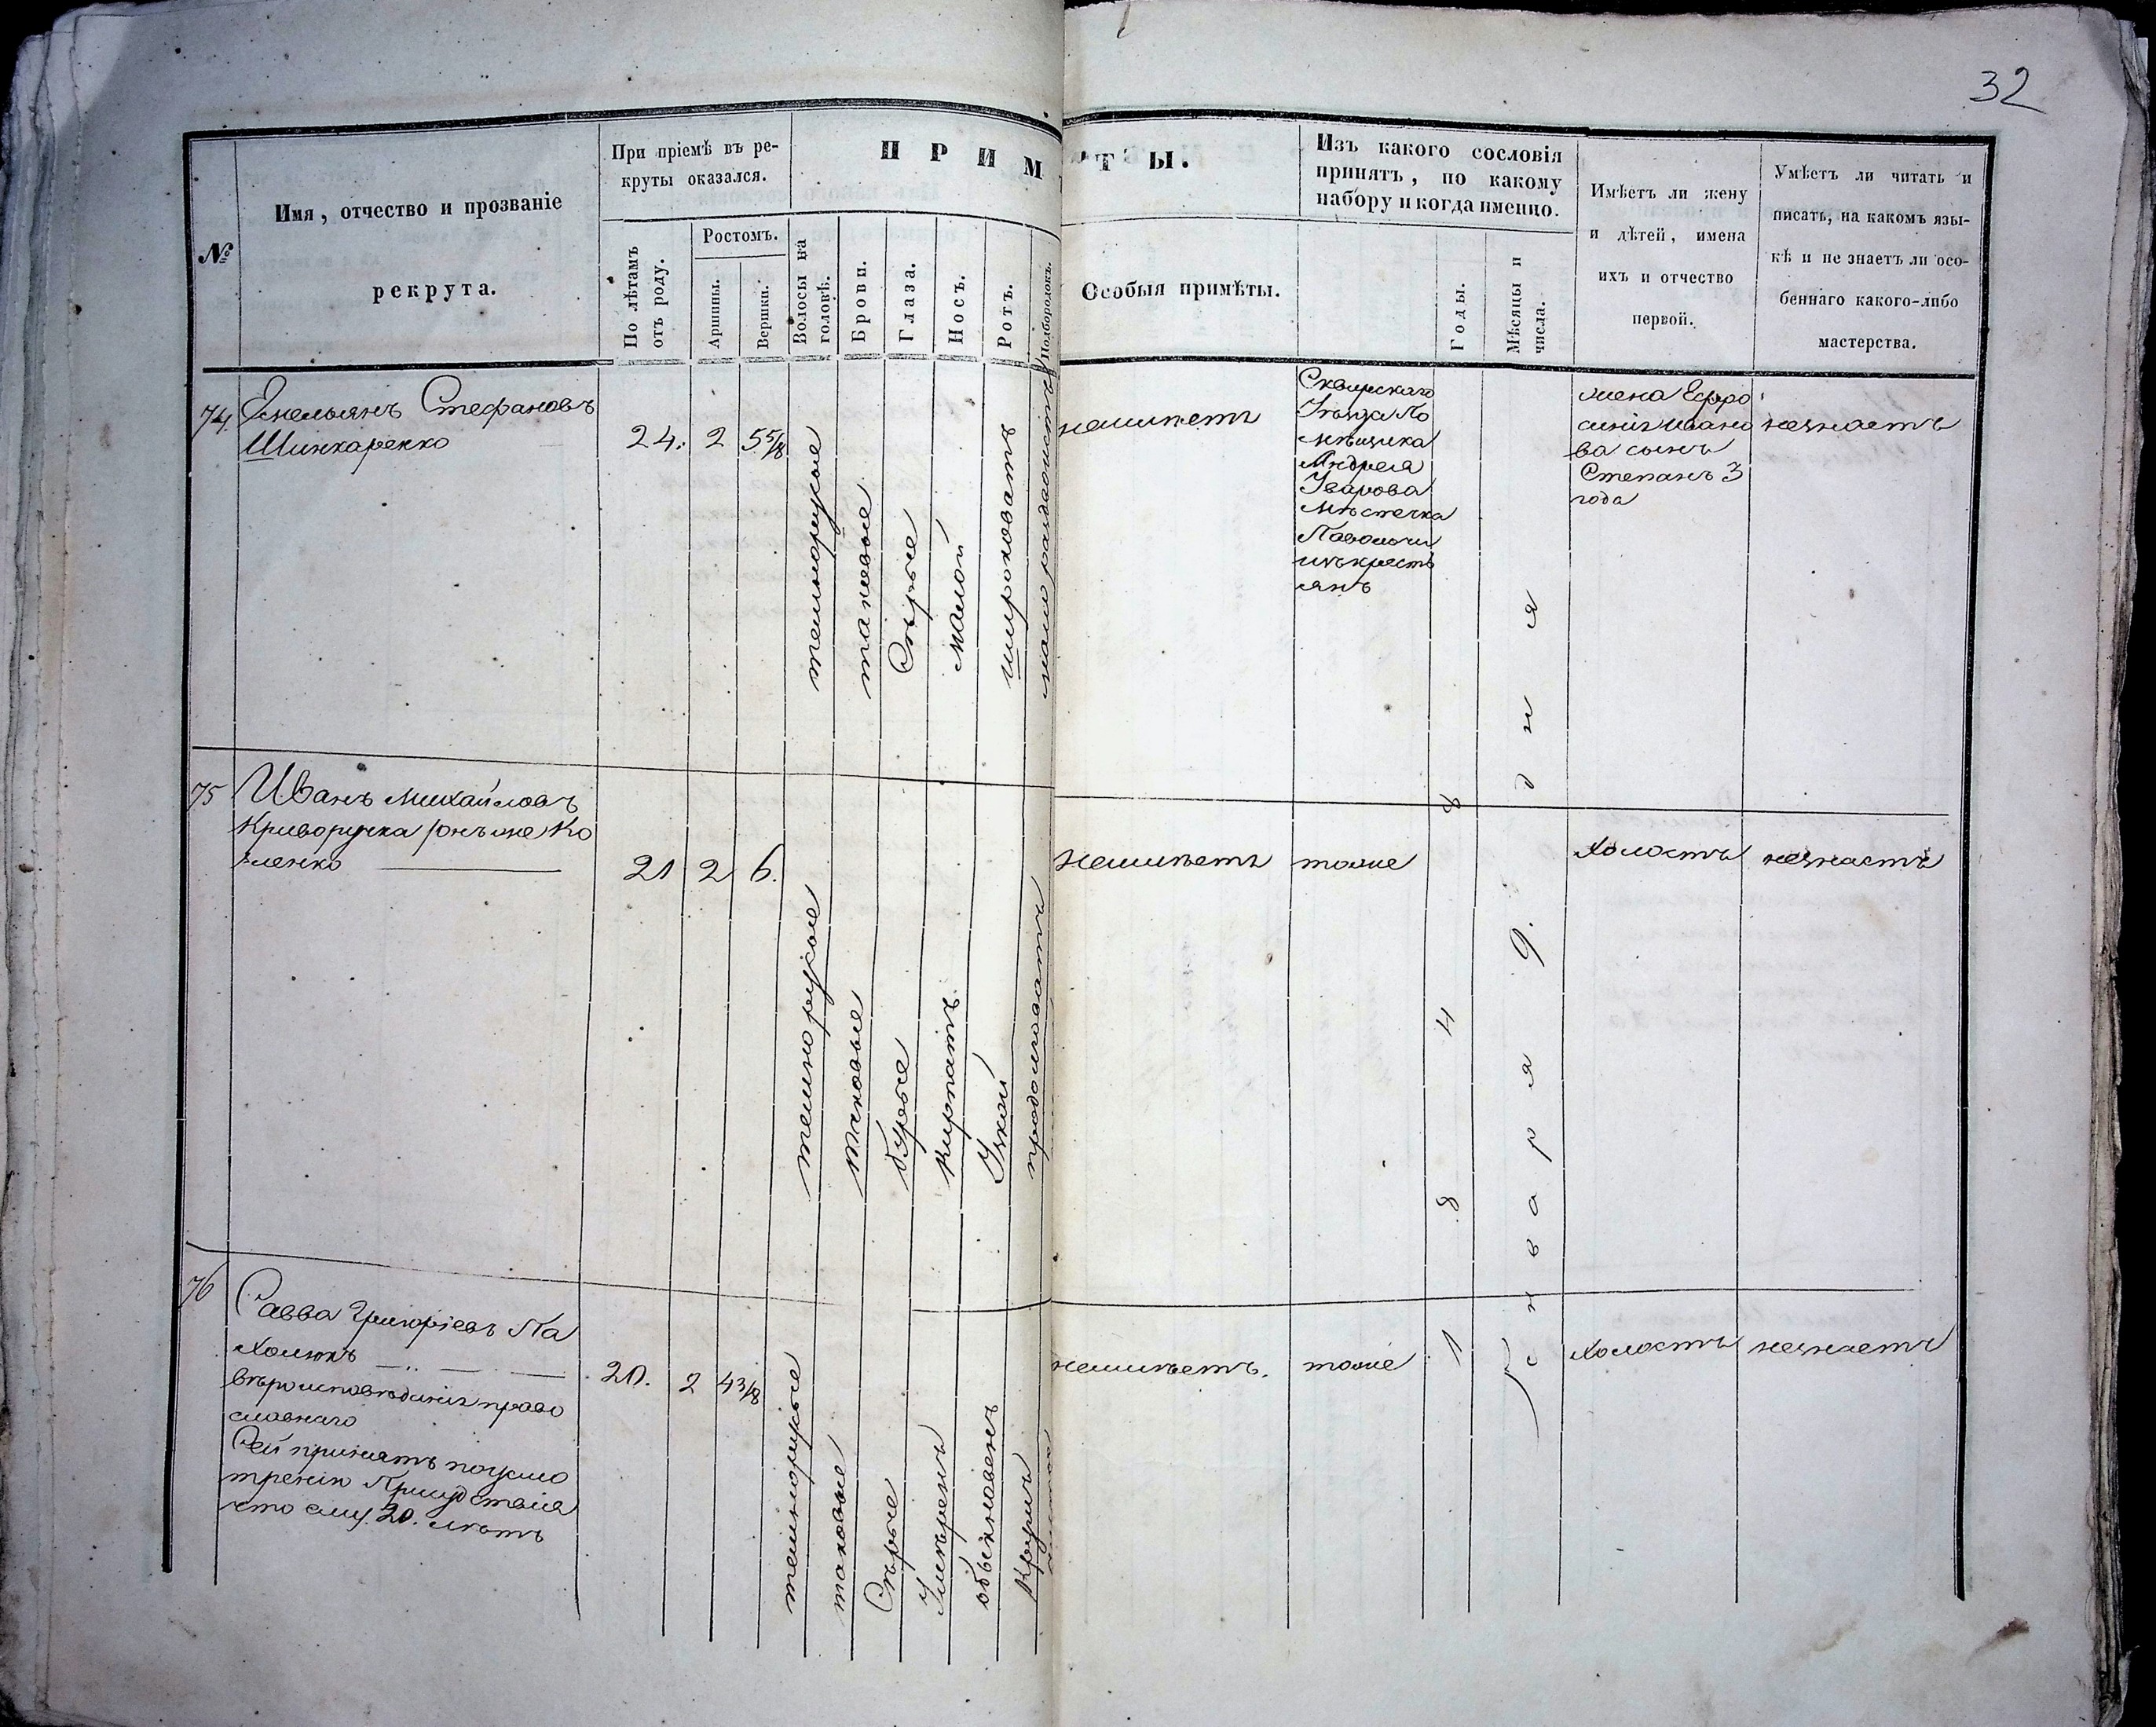 32
№
Имя, отчество и прозваніе
рекрута.
При пріемѣ въ ре-
круты оказался.
По лѣтамъ
отъ роду.
Ростомъ.
Аршины.
Вершки.
ПРИМ
ТЫ.
Волосы на
головѣ.
Брови.
Глаза.
Носъ.
Ротъ.
Подбородокъ.
Особыя примѣты.
Изъ какого сословія
принятъ, по какому
набору и когда именно.
Годы.
Мѣсяцы и
числа.
Имѣетъ ли жену
и дѣтей, имена
ихъ и отчество
первой.
Умѣетъ ли читать и
писать, на какомъ язы-
кѣ и не знаетъ ли осо-
беннаго какого-либо
мастерства.
74.
Емельянъ Стефановъ
Шинкаренко
24.
2
5 5/8
темнорусые
таковые
Сѣрые
малой
широковатъ
мало раздвоистъ
неимѣетъ
Сквирскаго
Уѣзда По
мѣщика
Андрея
Уварова
мѣстечка
Паволочи
изъ кресть
янъ
жена Ефро
синія Ивано
ва сынъ
Степанъ 3
года
незнаетъ
75
Иванъ Михайловъ
Криворучка /онъ же Ко
ленко
21
2
6.
темнорусые
таковые
бурые
курнатъ
Узкой
продолговатъ
неимѣетъ
тоже
холостъ
незнаетъ
76
Савва Григоріевъ Па
холюкъ
вѣроисповѣданія право
славнаго
Сей принятъ поусмо
трению Присудствія
что ему 20. лѣтъ
20.
2
4 3/8
темнорусые
таковые
Сѣрые
Умѣренъ
обыкновенъ
Кругъ
неимѣетъ.
тоже
холостъ
незнаетъ
184
Января 9. дня